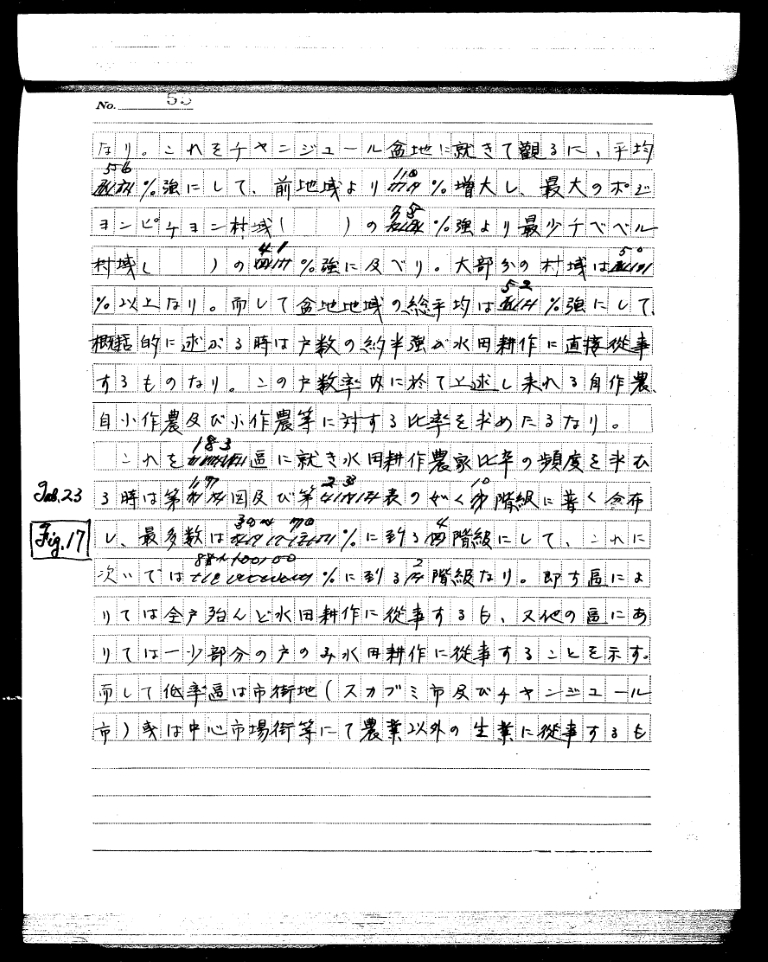 No. 55
なり。これをチヤンジユール盆地に就きて觀るに、平均
56%強にして、前地域より110%増大し、最大のポジ
ヨンピチヨン村域(　　)の75%強より最少チベベル
村域(　　)の41%強に及べり。大部分の村域は50
%以上なり。而して盆地地域の総平均は52%強にして、
概括的に述ぶる時は戸数の約半強が水田耕作に直接從事
するものなり。この戸数率内に於て上述し来れる自作農、
自小作農及び小作農等に対する比率を求めたるなり。
これを183區に就き水田耕作農家比率の頻度を半む
Tab.23 る時は第17図及び第23表の如く10階級に普く分布
Fig.17 し、最多数は　70%に到る4階級にして、これに
次いでは　100%に到る2階級なり。即ち區によ
りては全戸殆んど水田耕作に從事するも、又他の區にあ
りては一少部分の戸のみ水田耕作に從事することを示す。
而して低率區は市街地(スカブミ市及びチヤンジユール
市)或は中心市場街等にて農業以外の生業に從事するも